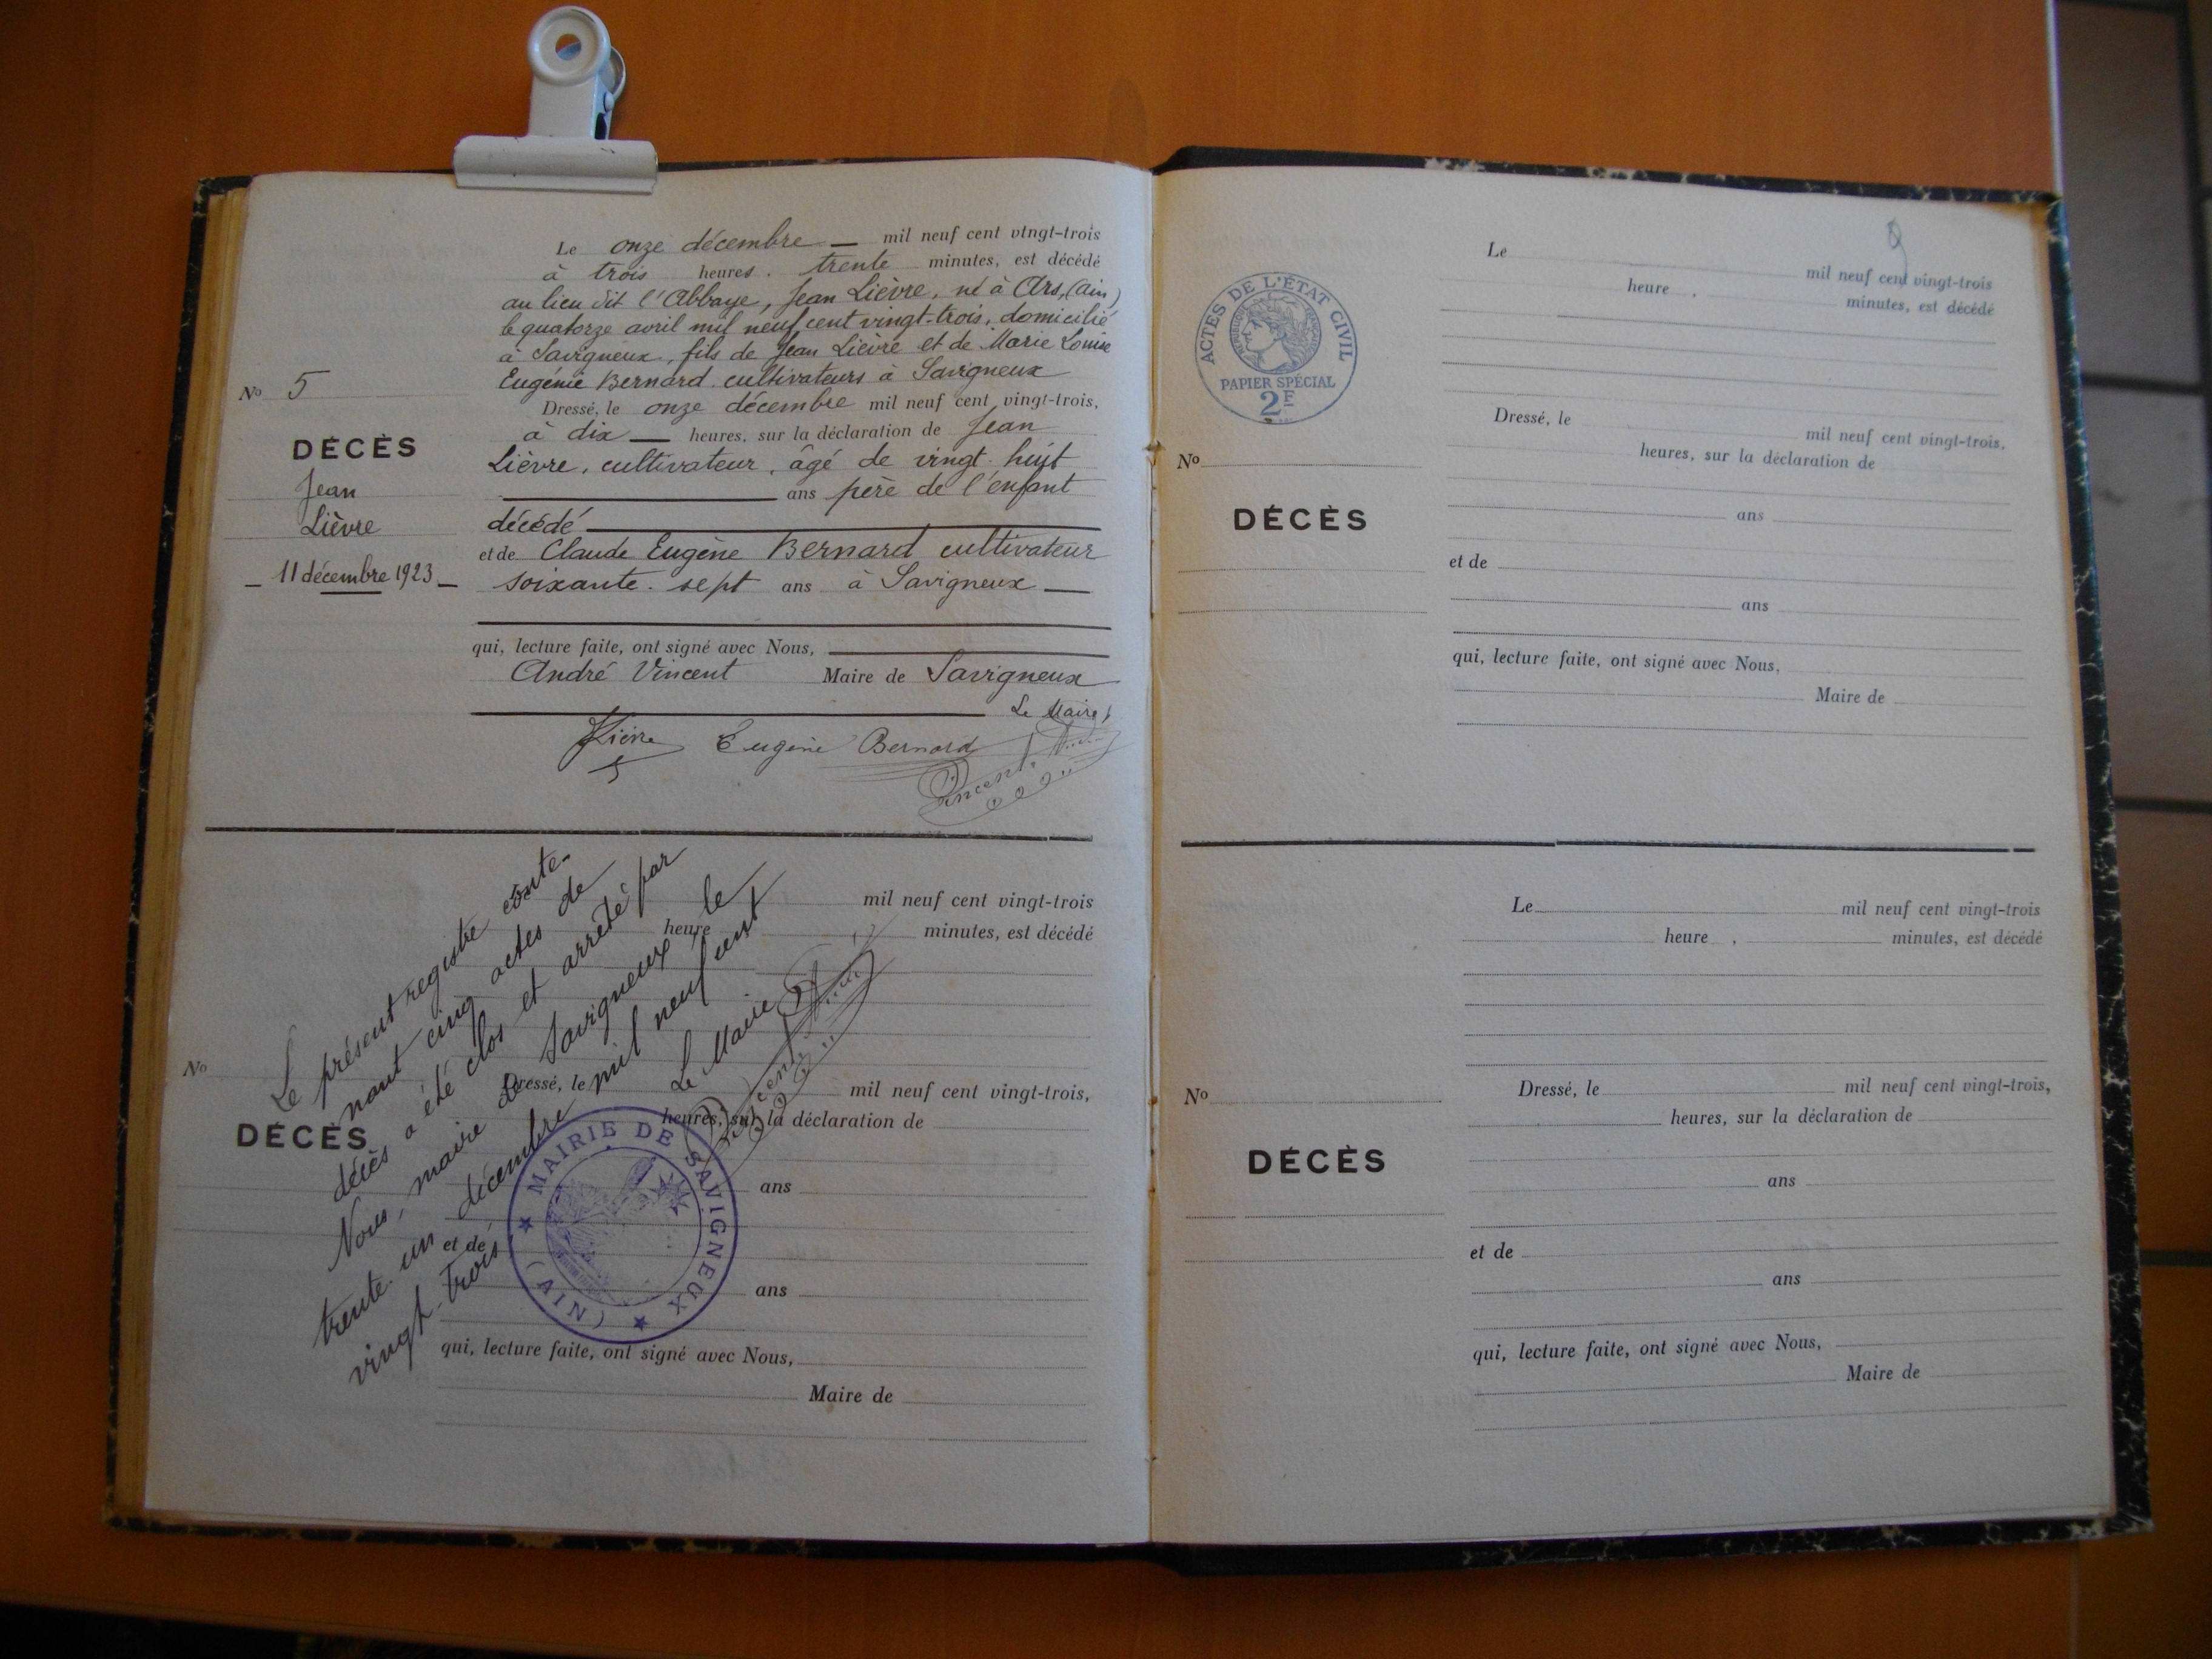 Le onze décembre — mil neuf cent vingt-trois
à trois heures. trente minutes, est décédé
au lieu dit l'Abbaye, Jean Lièvre, né à Ars, (Ain)
le quatorze avril mil neuf cent vingt-trois, domicilié
à Savigneux, fils de Jean Lièvre et de Marie Louise
Eugénie Bernard cultivateurs à Savigneux
Dressé, le onze décembre mil neuf cent vingt-trois,
à dix — heures, sur la déclaration de Jean
Lièvre, cultivateur, âgé de vingt-huit
ans père de l'enfant
décédé
et de Claude Eugène Bernard cultivateur
soixante-sept ans à Savigneux —
qui, lecture faite, ont signé avec Nous,
André Vincent Maire de Savigneux
Le Maire,
Lièvre Eugène Bernard
Vincent
No 5
DÉCÈS
Jean
Lièvre
— 11 décembre 1923 —
mil neuf cent vingt-trois
heure minutes, est décédé
No
DÉCÈS
Dressé, le mil neuf cent vingt-trois,
heures, sur la déclaration de
ans
et de
ans
qui, lecture faite, ont signé avec Nous,
Maire de
Le présent registre conte-
nant cinq actes de
décès a été clos et arrêté par
Nous, maire de Savigneux le
trente-un décembre mil neuf cent
vingt-trois
Le Maire
Vincent
MAIRIE DE SAVIGNEUX
(AIN)
9
ACTES DE L'ÉTAT CIVIL
RÉPUBLIQUE FRANÇAISE
PAPIER SPÉCIAL
2F
Le mil neuf cent vingt-trois
heure , minutes, est décédé
Dressé, le mil neuf cent vingt-trois,
heures, sur la déclaration de
No
DÉCÈS
ans
et de
ans
qui, lecture faite, ont signé avec Nous,
Maire de
Le mil neuf cent vingt-trois
heure , minutes, est décédé
Dressé, le mil neuf cent vingt-trois,
No
heures, sur la déclaration de
DÉCÈS
ans
et de
ans
qui, lecture faite, ont signé avec Nous,
Maire de